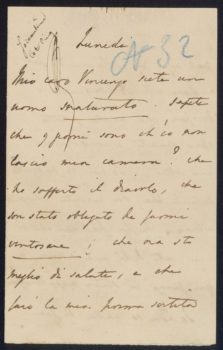 Lunedì
N 32
Mio caro Vincenzo siete un
uomo snaturato. Sapete
che 9 giorni sono ch'io non
lascio mia camera? che
ho sofferto il diavolo, che
son stato obligato di farmi
ventosare; che ora sto
meglio di salute, e che
farò la mia prima sortita